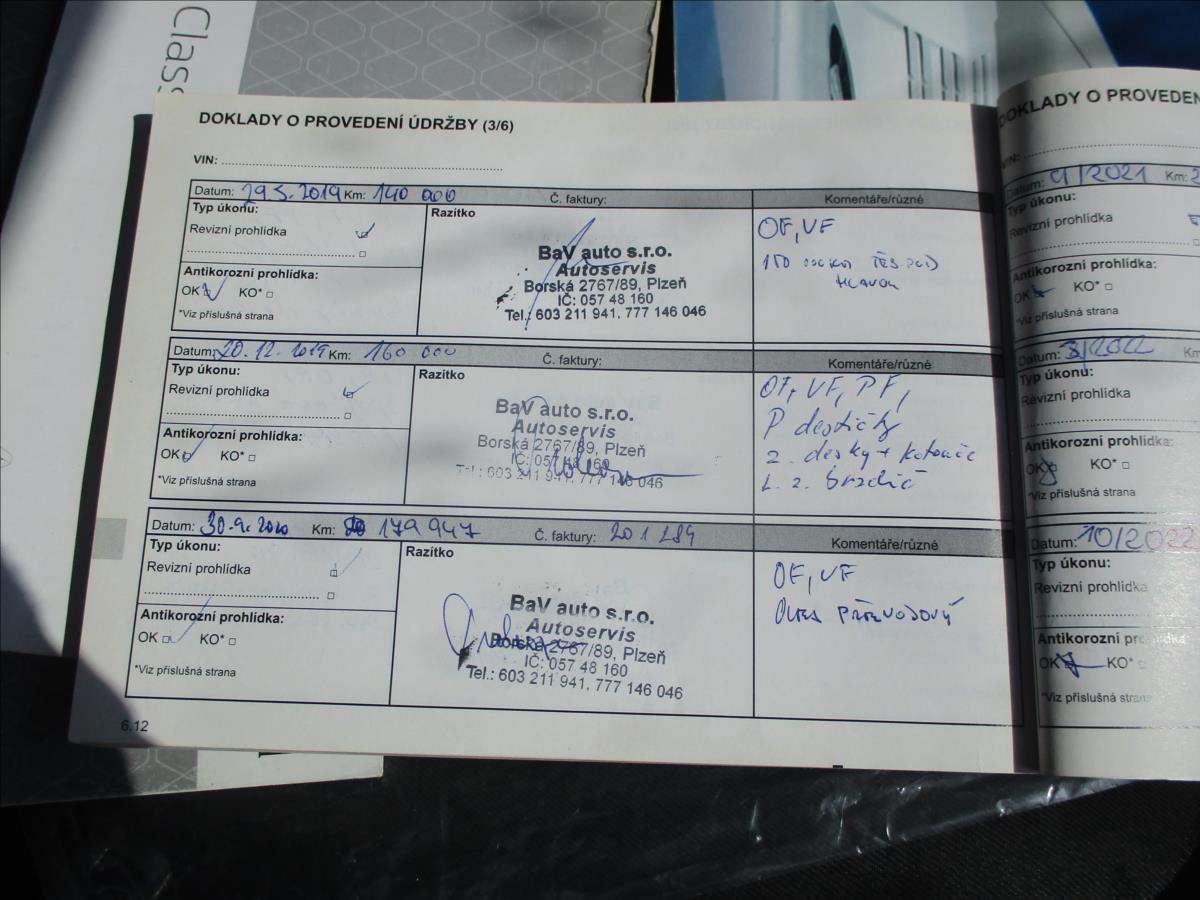 Class
DOKLADY O PROVEDENÍ ÚDRŽBY (3/6)
VIN:
Datum: 29.5.2019 Km: 140 000 Č. faktury: Komentáře/různé
Typ úkonu:
Revizní prohlídka
Antikorozní prohlídka:
OK KO*
*Viz příslušná strana
Razítko
BaV auto s.r.o.
Autoservis
Borská 2767/89, Plzeň
IČ: 057 48 160
Tel.: 603 211 941, 777 146 046
OF, VF
TĚS. POD
HLAVOU
Datum: 20.12.2019 Km: 160 000 Č. faktury: Komentáře/různé
Typ úkonu:
Revizní prohlídka
Antikorozní prohlídka:
OK KO*
*Viz příslušná strana
Razítko
BaV auto s.r.o.
Autoservis
Borská 2767/89, Plzeň
IČ: 057 48 160
Tel.: 603 211 941, 777 146 046
OF, VF, PF,
P destičky
z. desky + kotouče
L. z. brzdič
Datum: 30.9.2020 Km: 179 947 Č. faktury: 201284 Komentáře/různé
Typ úkonu:
Revizní prohlídka
Antikorozní prohlídka:
OK KO*
*Viz příslušná strana
Razítko
BaV auto s.r.o.
Autoservis
Borská 2767/89, Plzeň
IČ: 057 48 160
Tel.: 603 211 941, 777 146 046
OF, VF
PŘEVODOVÝ
6.12
DOKLADY O PROVEDEN
VIN:
Datum: 9/2021 Km: 2
Typ úkonu:
Revizní prohlídka
Antikorozní prohlídka:
OK KO*
*Viz příslušná strana
Datum: 3/2022 Km
Typ úkonu:
Revizní prohlídka
Antikorozní prohlídka:
OK KO*
*Viz příslušná strana
Datum: 10/2022
Typ úkonu:
Revizní prohlídka
Antikorozní prohlídka
OK KO*
*Viz příslušná strana